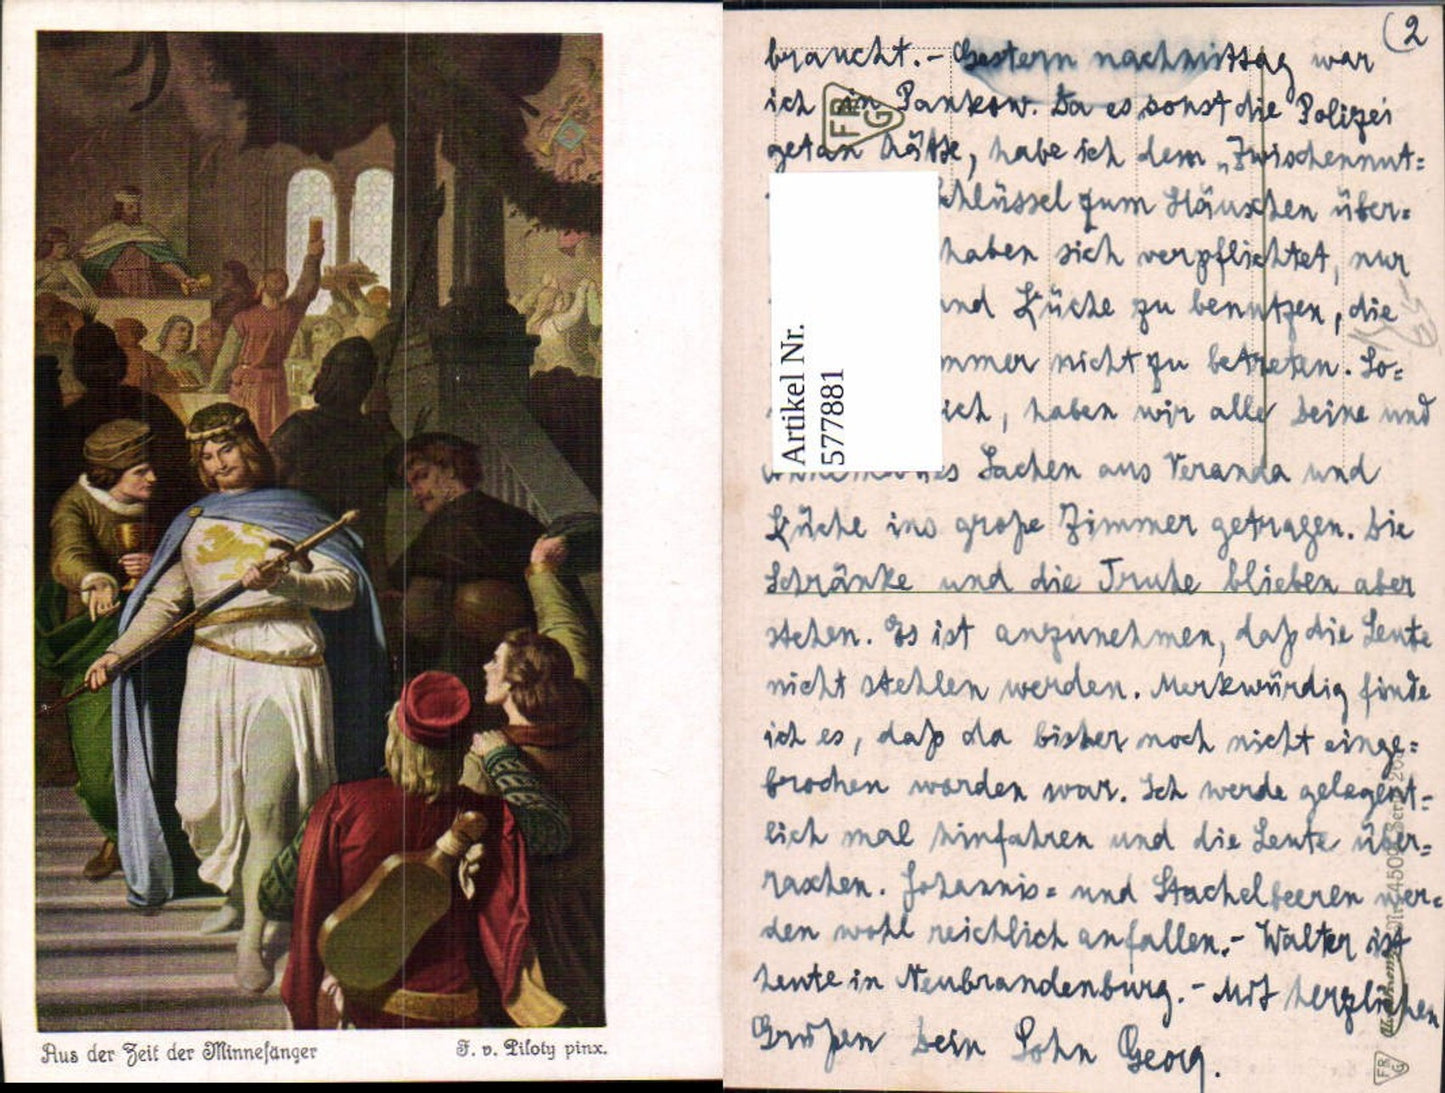 Aus der Zeit der Minnesänger
F. v. Piloty pinx.
(2
braucht.- Gestern nachmittag war
ich in Pankow. Da es sonst die Polizei
getan hätte, habe ich dem „Zwischennut=
hlüssel zum Häuschen über=
haben sich verpflichtet, nur
und Küche zu benutzen, die
mmer nicht zu betreten. So=
ich, haben wir alle Deine und
Sachen aus Veranda und
Küche ins große Zimmer getragen. Die
Schränke und die Truhe blieben aber
stehen. Es ist anzunehmen, daß die Leute
nicht stehlen werden. Merkwürdig finde
ich es, daß da bisher noch nicht einge=
brochen worden war. Ich werde gelegent=
lich mal hinfahren und die Leute über=
raschen. Johannis= und Stachelbeeren wer=
den wohl reichlich anfallen.- Walter ist
heute in Neubrandenburg.- Mit herzlichen
Grüßen Dein Sohn Georg.
Artikel Nr.
577881
FR
G
FR
G